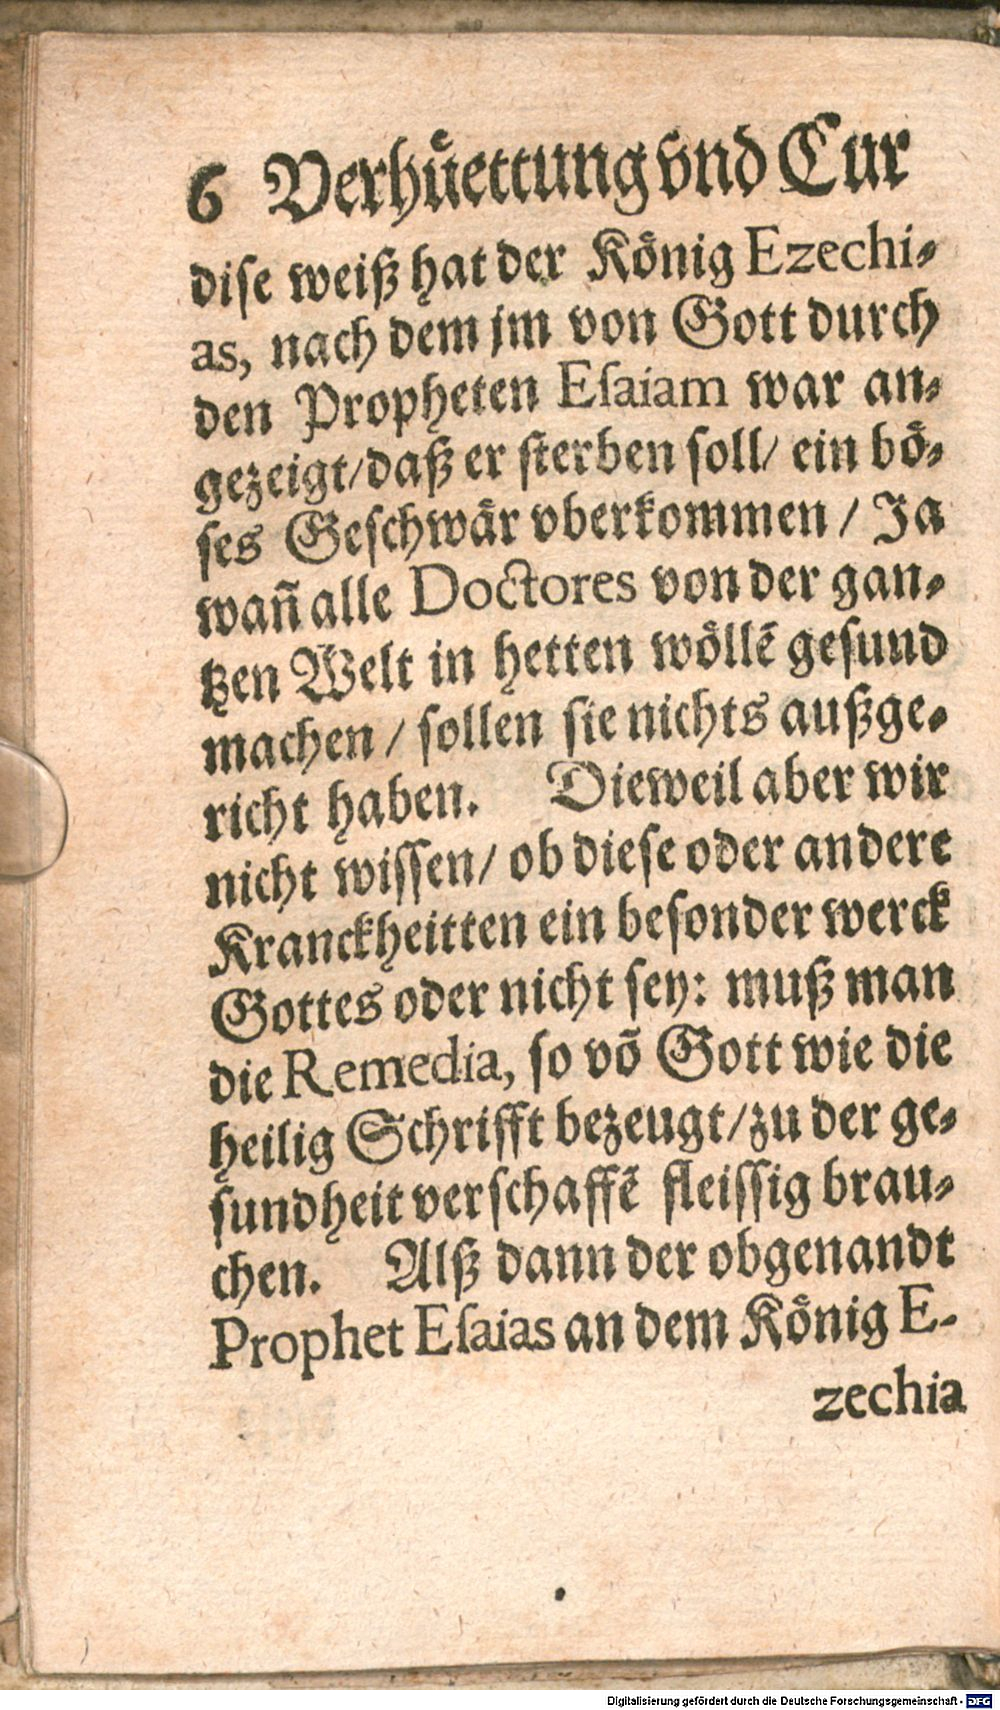 6 Verhuͤettung vnd Cur
dise weiß hat der Koͤnig Ezechi-
as, nach dem jm von Gott durch
den Propheten Esaiam war an-
gezeigt/daß er sterben soll/ ein boͤ-
ses Geschwaͤr vberkommen / Ja
wañ alle Doctores von der gan-
tzen Welt in hetten woͤllẽ gesund
machen / sollen sie nichts außge-
richt haben. Dieweil aber wir
nicht wissen/ ob diese oder andere
Kranckheitten ein besonder werck
Gottes oder nicht sey: muß man
die Remedia, so võ Gott wie die
heilig Schrifft bezeugt/zu der ge-
sundheit verschaffẽ fleissig brau-
chen. Alß dann der obgenandt
Prophet Esaias an dem Koͤnig E-
zechia
Digitalisierung gefördert durch die Deutsche Forschungsgemeinschaft - DFG